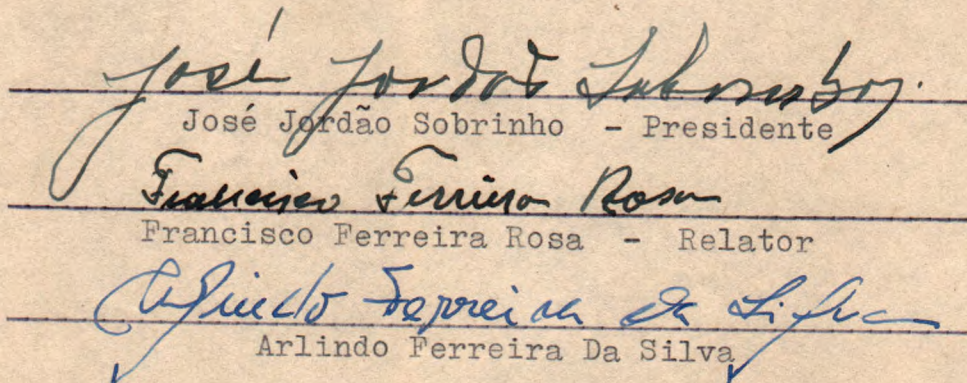 José Jordão Sobrinho
José Jordão Sobrinho - Presidente
Francisco Ferreira Rosa
Francisco Ferreira Rosa - Relator
Arlindo Ferreira da Silva
Arlindo Ferreira Da Silva